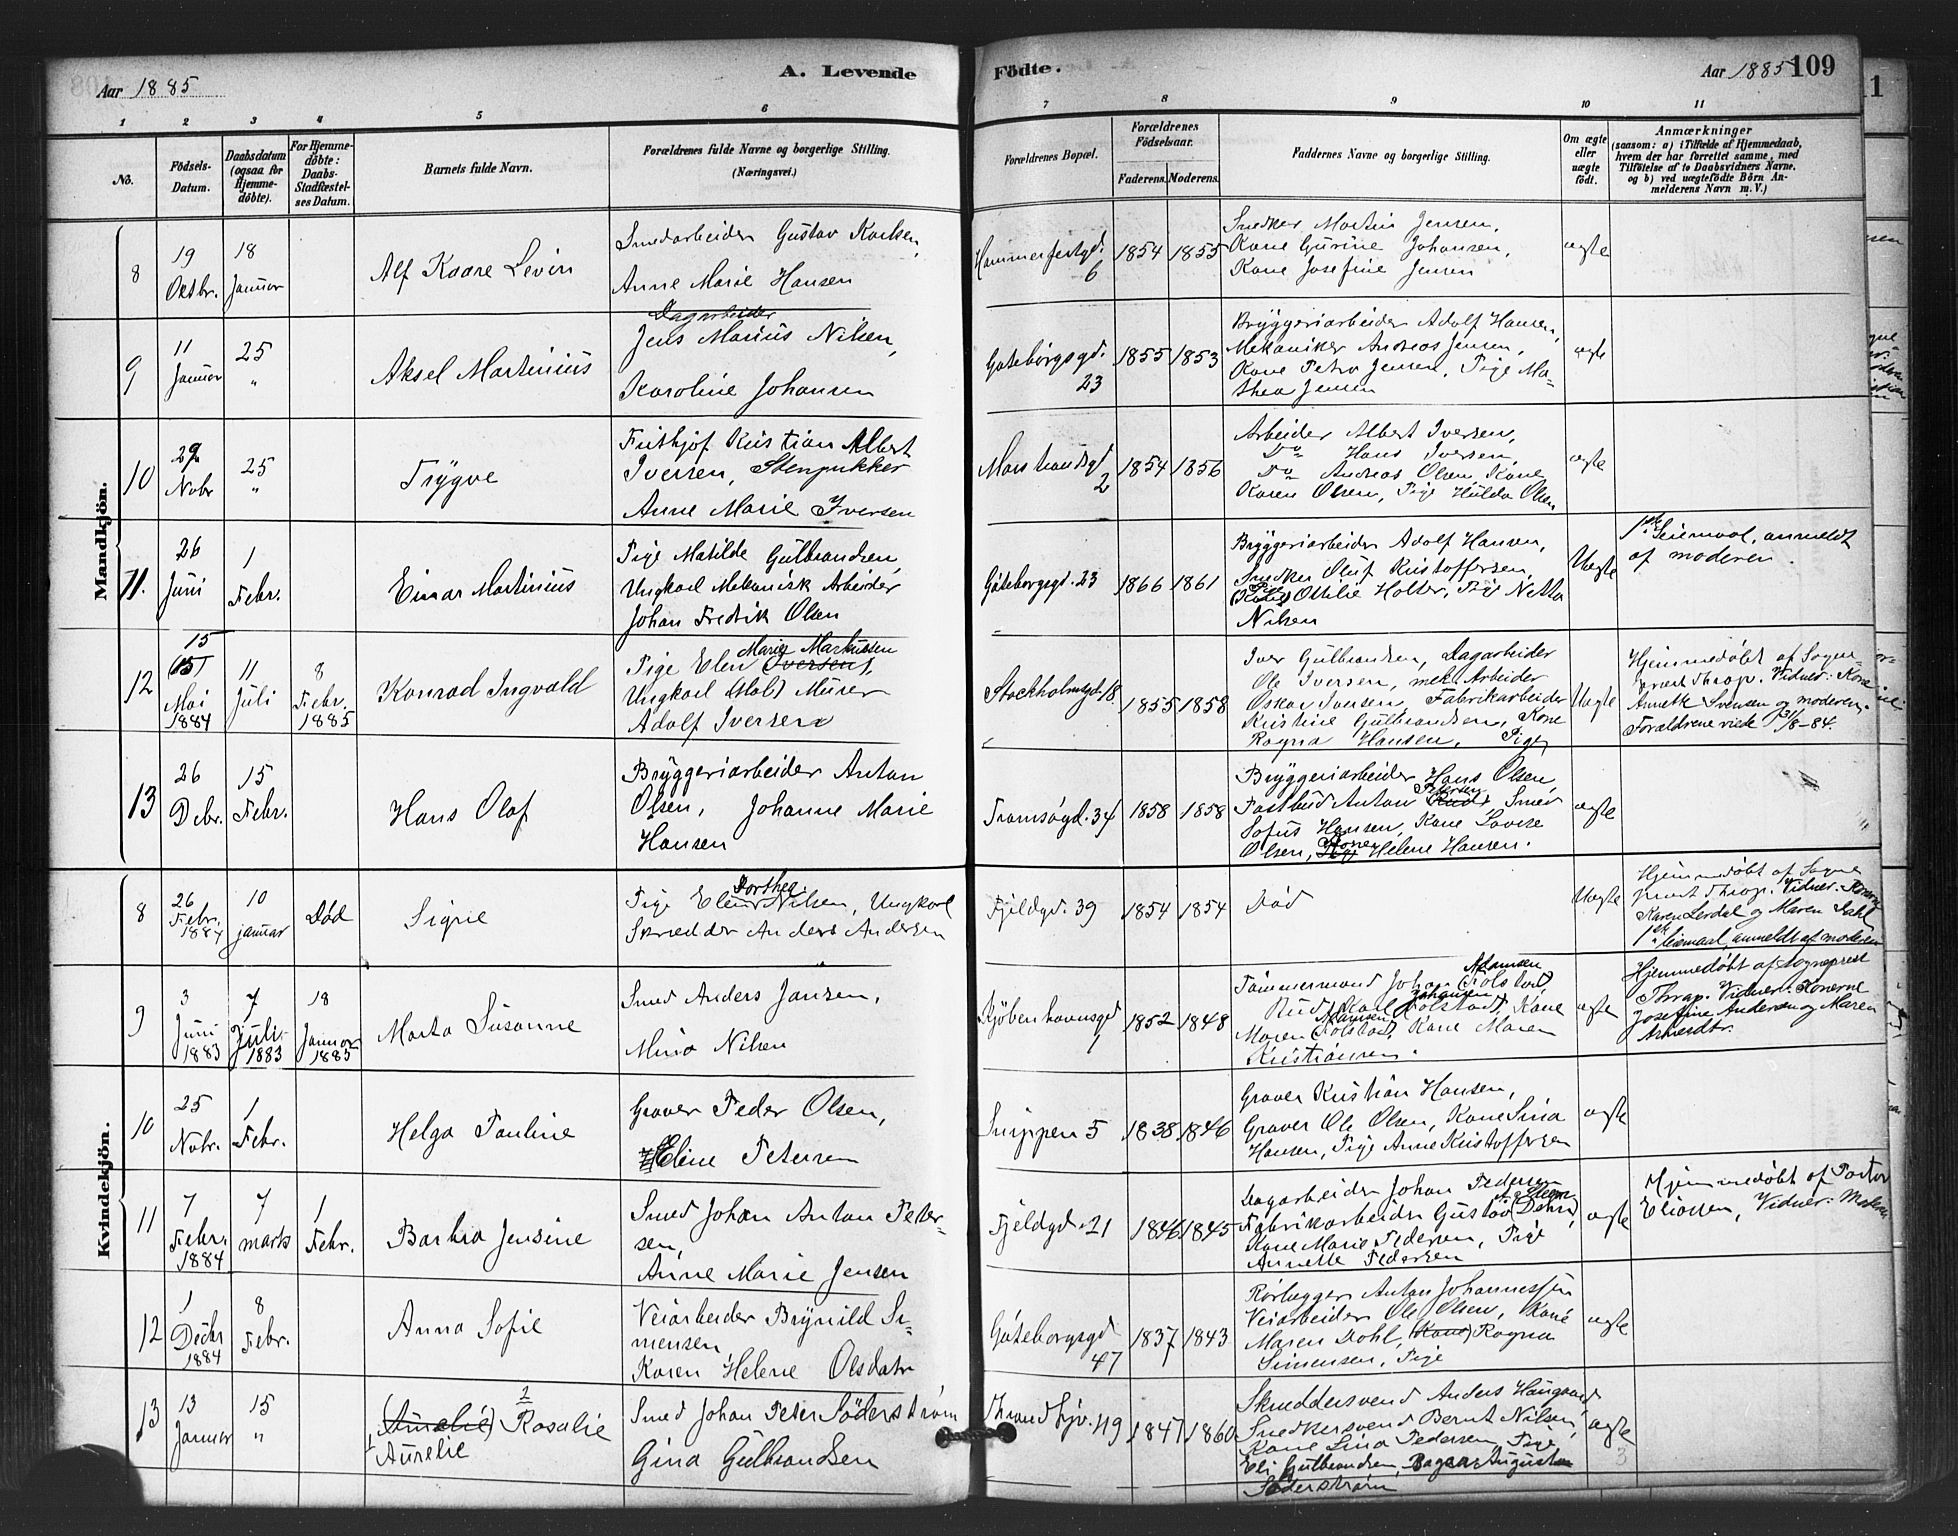 Aar 1885
A. Levende
Födte.
Aar 1885
109
1 2 3 4 5 6 7 8 9 10 11
No.
Födsels-Datum.
Daabsdatum (ogsaa for Hjemmedöbte).
For Hjemmedöbte: Daabs-Stadfæstelses Datum.
Barnets fulde Navn.
Forældrenes fulde Navne og borgerlige Stilling. (Næringsvei.)
Forældrenes Bopæl.
Forældrenes Födselsaar.
Faderens. Moderens.
Faddernes Navne og borgerlige Stilling.
Om ægte eller uægte födt.
Anmærkninger
(saasom: a) i Tilfælde af Hjemmedaab, hvem der har forrettet samme, med Tilföielse af to Daabsvidners Navne, og b) ved uægtefödte Börn Anmelderens Navn m. V.)
Mandkjön.
8
19 Oktbr.
18 Januar
Alf Kaare Levin
Smedarbeider Gustav Karlsen,
Anne Marie Hansen
Hammerfestgd. 6
1854 1855
Snedker Martin Jensen,
Kone Gurine Johansen,
Kone Josefine Jensen
ægte
9
11 Januar
25 "
Aksel Martinius
Dagarbeider
Jens Marius Nilsen,
Karoline Johansen
Gøteborgsgd. 23
1855 1853
Bryggeriarbeider Adolf Hansen,
Mekaniker Andreas Jensen,
Kone Petra Jensen, Pige Ma=
thea Jensen
ægte
10
29 Nobr
25 "
Trygve
Frithjof Kristian Albert
Iversen, Stenpukker
Anne Marie Iversen
Marstrandsgd 2
1854 1856
Arbeider Albert Iversen,
Do Hans Iversen,
Do Andreas Olsen, Kone
Karen Olsen, Pige Hulda Olsen
ægte
11.
26 Juni
1 Febr.
Einar Martinius
Pige Matilde Gulbrandsen,
Ungkarl Mekanisk Arbeider
Johan Fredrik Olsen
Gøteborgsgd. 23
1866 1861
Bryggeriarbeider Adolf Hansen,
Snedker Oluf Kristoffersen,
Pige
(Kone) Ottilie Holter, Pige Netta
Nilsen
Uægte
1ste Leiermaal, anmeldt
af moderen.
12
15
15 Mai 1884
11 Juli
8 Febr. 1885
Konrad Ingvald
Marie Markussen
Pige Elen (Iversen),
Ungkarl Murer
Adolf Iversen
Stockholmsgd. 18
1855 1858
Iver Gulbrandsen, Dagarbeider
Ole Iversen, mek. Arbeider
Oskar Iversen, Fabrikarbeider
Kristine Gulbrandsen, Kone
Ragna Hansen, Pige
Uægte
Hjemmedøbt af Sogne=
præst Thrap. Vidner: Kone
Annette Svensen og moderen.
Forældrene viede 31/8-84.
13
26 Debr.
15 Febr.
Hans Olaf
Bryggeriarbeider Anton
Olsen, Johanne Marie
Hansen
Tromsøgd. 34
1858 1858
Bryggeriarbeider Hans Olsen,
Postbud Anton Petersen, Smed
Sofus Hansen, Kone Lovise
Olsen, Kone Helene Hansen.
ægte
Kvindekjön.
8
26 Febr. 1884
10 januar
Død
Signe
Dorthea
Pige Elen Nilsen, Ungkarl
Skrædder Anders Andersen
Fjeldgd. 39
1854 1854
Død
Uægte
Hjemmedøbt af Sogne
præst Thrap. Vidner: Konerne
Karen Lerdal og Maren Dahl
1ste leiermaal, anmeldt af moderen
9
3 Juni 1883
7 Juli 1883
18 Januar 1885
Marta Susanne
Smed Anders Jansen,
Mina Nilsen
Kjøbenhavnsgd
1852 1848
Adamsen
Tømmermand Johan (Folstad),
Johansen
Bud Karl (Folstad), Kone
Adamsen
Maren (Folstad), Kone Maren
Kristiansen.
ægte
Hjemmedøbt af Sogneprest
Thrap. Vidner: Konerne
Josefine Andersen og Maren
10
25 Nobr.
1 Febr.
Helga Pauline
Graver Peder Olsen,
Eline Petersen
Snippen 5
1838 1846
Graver Kristian Hansen,
Graver Ole Olsen, Kone Lina
Hansen, Pige Anne Kristoffersen
ægte
11
7 Febr. 1884
7 marts
1 Febr.
Barbra Jensine
Smed Johan Anton Peter=
sen,
Anne Marie Jensen
Fjeldgd. 21
1846 1845
Dagarbeider Johan Pedersen
Fabrikarbeider Gustav
Kone Marie Pedersen, Pige
Annette Pedersen
ægte
Hjemmedøbt af Pastor
Eliassen, Vidner:
12
1 Decbr 1884
8 Febr.
Anna Sofie
Veiarbeider Brynild Si=
mensen
Karen Helene Olsdatr
Gøteborgsgd 47
1837 1843
Rørlægger Anton Johannessen
Veiarbeider Ole Olsen, Kone
Maren Dahl, (Kone) Ragna
Simensen, Pige
ægte
13
13 Januar
15 "
2
(Amalie) Rosalie
1
Aurelie
Smed Johan Peter Söderström
Gina Gulbrandsen
Throndhjv. 49
1847 1860
Skræddersvend Anders Haugaard
Snedkersvend Bernt Nilsen,
Kone Lina Pedersen, Pige
Eli Gulbrandsen, Bager August
Söderström
ægte
3